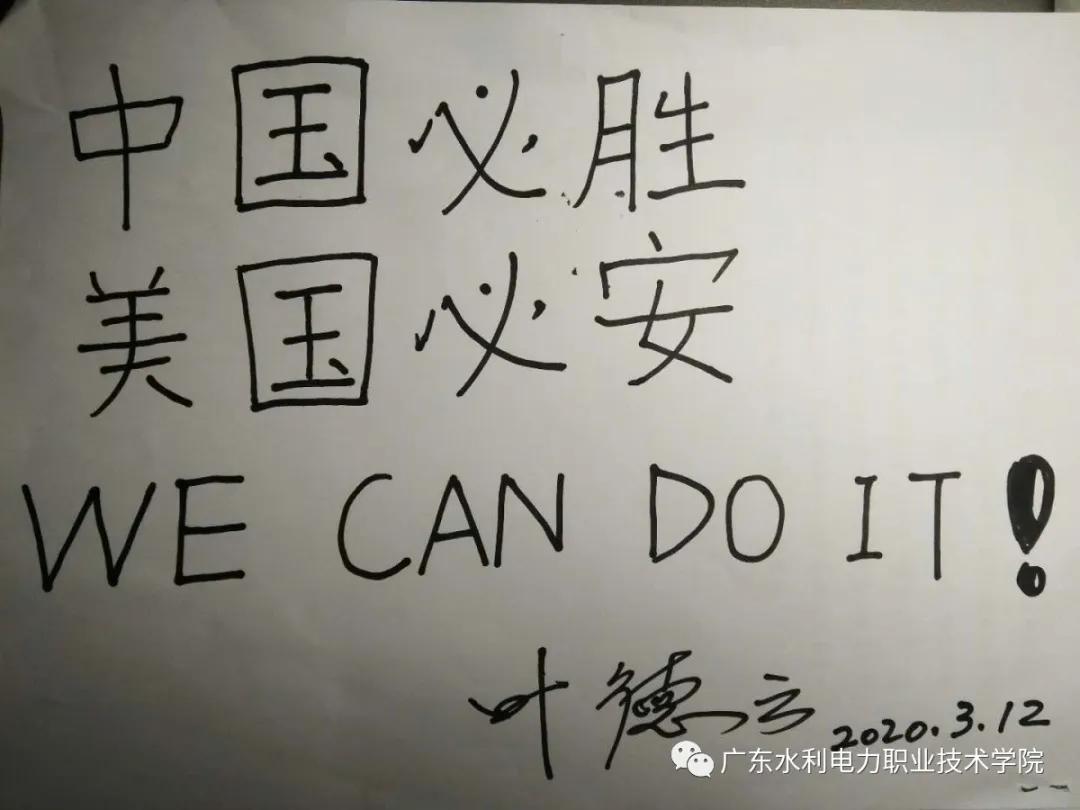 中国必胜
美国必安
WE CAN DO IT!
叶德云 2020.3.12
广东水利电力职业技术学院